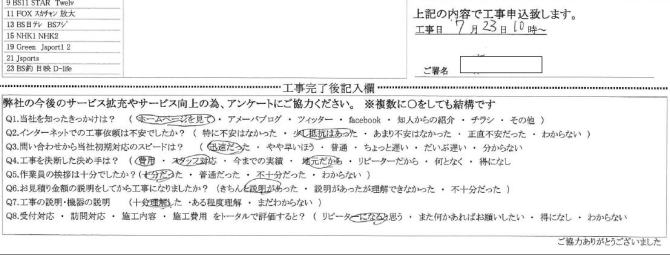 9 BS11 STAR Twelv
11 FOX スカチャン 放大
13 BS日テレ BSフジ
15 NHK1 NHK2
19 Green Jsport1 2
21 Jsports
23 BS釣 日映 D-life
上記の内容で工事申込致します。
工事日 '7 月 23 日 10時~
ご署名
工事完了後記入欄
弊社の今後のサービス拡充やサービス向上の為、アンケートにご協力ください。 ※複数に〇をしても結構です
Q1.当社を知ったきっかけは? ( ホームページを見て ・ アメーバブログ ・ ツィッター ・ facebook ・ 知人からの紹介 ・ チラシ ・ その他 )
Q2.インターネットでの工事依頼は不安でしたか? ( 特に不安はなかった ・ 少し抵抗はあった ・ あまり不安はなかった ・ 正直不安だった ・ わからない )
Q3.問い合わせから当社初期対応のスピードは? ( 迅速だった ・ やや早いほう ・ 普通 ・ ちょっと遅い ・ だいぶ遅い ・ 分からない )
Q4.工事を決断した決め手は? ( 費用 ・ スタッフ対応 ・ 今までの実績 ・ 地元だから ・ リピーターだから ・ 何となく ・ 得になし
Q5.作業員の挨拶は十分でしたか? ( 十分だった ・ 普通だった ・ 不十分だった ・ わからない )
Q6.お見積り金額の説明をしてから工事になりましたか? ( きちんと説明があった ・ 説明があったが理解できなかった ・ 不十分だった )
Q7.工事の説明・機器の説明 ( 十分理解した ・ ある程度理解 ・ まだわからない )
Q8.受付対応 ・ 訪問対応 ・ 施工内容 ・ 施工費用 をトータルで評価すると? ( リピーターになると思う ・ また何かあればお願いしたい ・ 得になし ・ わからない
ご協力ありがとうございました